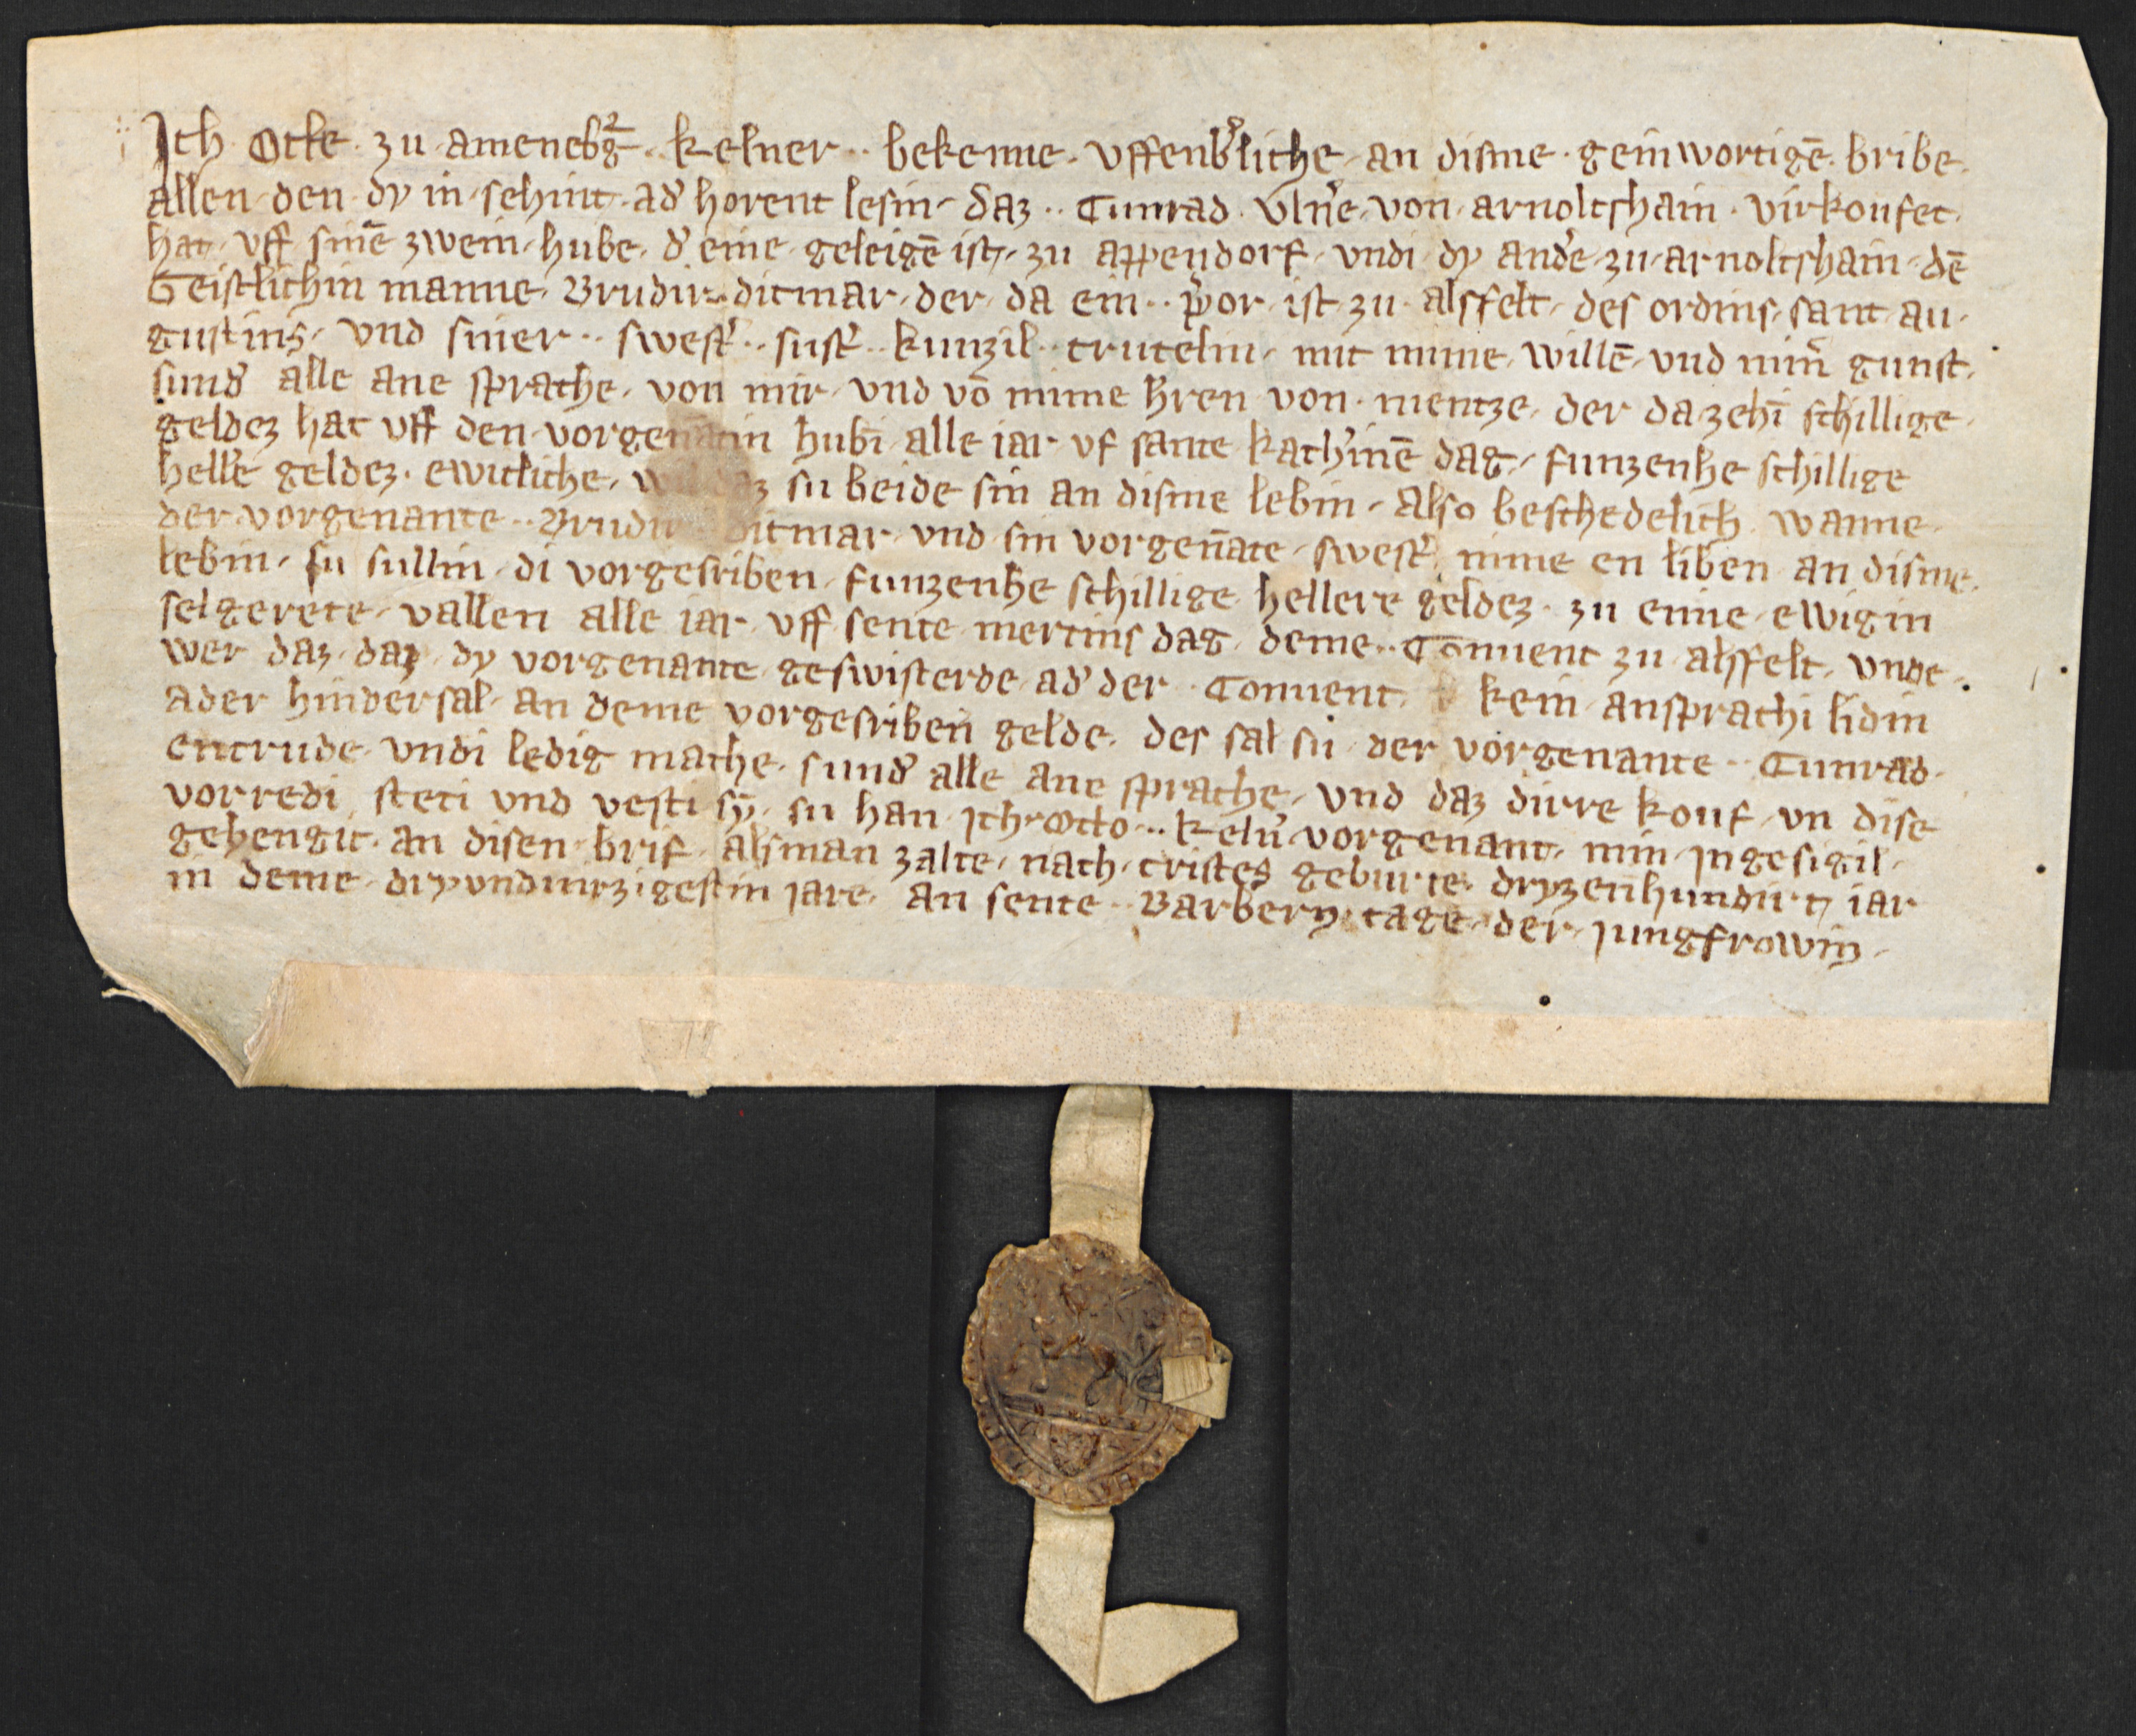 Ich Otte zu ameneb²g kelner bekenne vffenbͬliche an disme geinwortigē bribe
allen den dy in sehint ad͛ horent lesin daz Cunrad vln͛e von arnoltshain virkoufet
hat vff sinē zwein hube d͛ eine geleigē ist zu appendorf vndi dy and͛e zu arnoltshain dē
Geistlichin manne Brudir ditmar der da ein p͛or ist zu alsfelt des ordins sant au
gustins vnd siner swest͛ sust͛ kunzil trutelin mit mime willē vnd min̄ gunst
sund͛ alle ane sprache von mir vnd vō mime h͛ren von mentze der da zehī schillige
geldez hat vff den vorgenātin hubī alle iar vf sante kath͛inē dag funzenhe schillige
hell͛e geldez ewicliche wil daz su beide sin an disme lebin Also beschedelich wanne
der vorgenante Brudir ditmar vnd sin vorgen̄ate swest͛ nime en liben an disme
lebin su sullin di vorgesriben funzenhe schillige hellere geldez zu eime ewigin
selgerete vallen alle iar vff sente mertins dag deme Conuent zu alsfelt vnde
wer daz daz dy vorgenante geswisterde ad͛ der Conuent kein ansprachi lidin
ader hindersal an deme vorgesriben gelde des sal su der vorgenante Cunrad
entrude vndi ledig mache sund͛ alle ane sprache vnd daz dirre kouf vn dise
vorredi steti vnd vesti sy su han ich Otto keln͛ vorgenant min ingesigil
gehengit an disen brif alsman zalte nach cristes geburte dryzenhundirt iar
in deme dryundvirzigestin iare An sente Barbern tage der iungfrowin